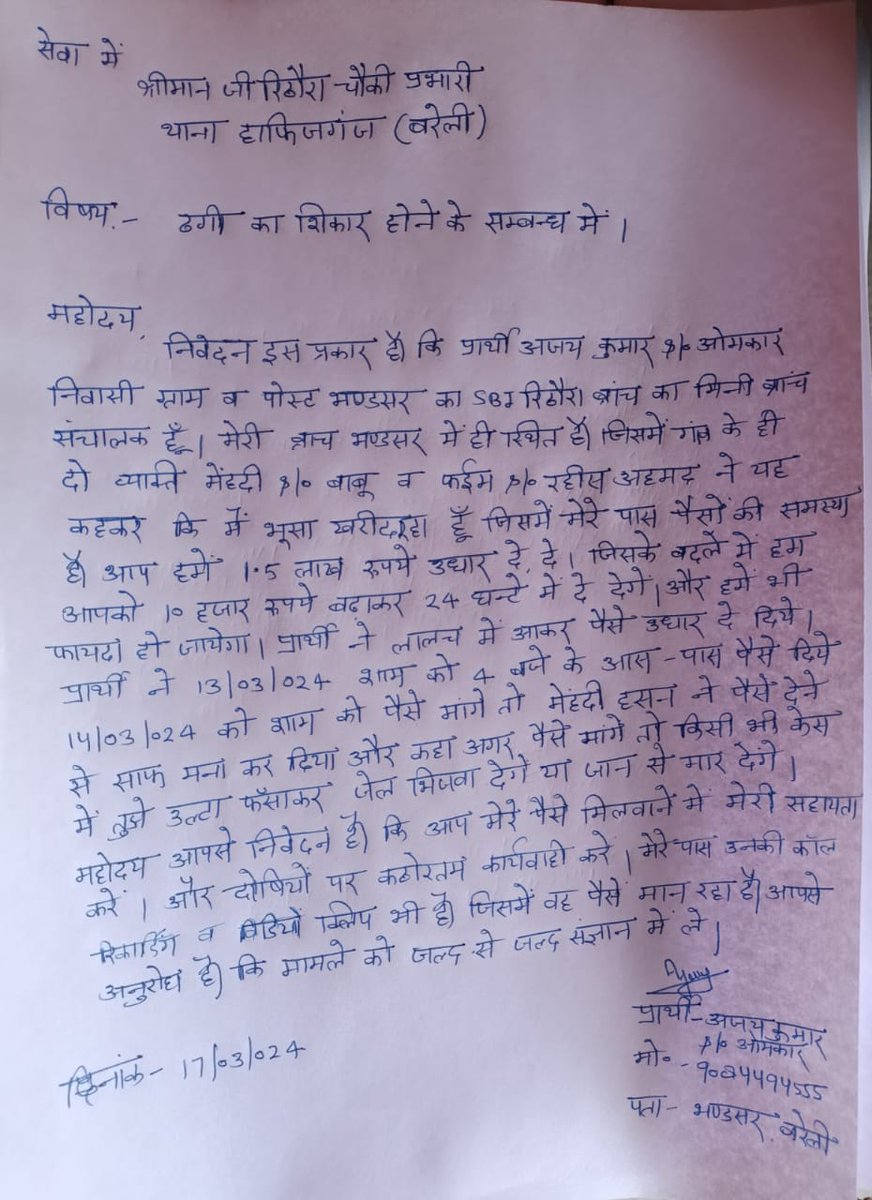 सेवा में
श्रीमान जी रिठौरा चौकी प्रभारी
थाना हाफिजगंज (बरेली)
विषय.- ठगी का शिकार होने के सम्बन्ध में ।
महोदय,
निवेदन इस प्रकार है। कि प्रार्थी अजय कुमार s/o ओमकार
निवासी ग्राम व पोस्ट भण्डसर का SBI रिठौरा ब्रांच का मिनी ब्रांच
संचालक हूँ। मेरी ब्राच भण्डसर में ही स्थित है। जिसमें गांव के ही
दो व्यक्ति मेंहदी s/o बाबू व फईम s/o रहीस अहमद ने यह
कहकर कि में भूसा खरीद रहा हूँ जिसमें मेरे पास पैसों की समस्या
है। आप हमें 1.5 लाख रुपये उधार दे, दे। जिसके बदले में हम
आपको 10 हजार रुपये बढाकर 24 घन्टे में दे देगें। और हमें भी
फायदा हो जायेगा। प्रार्थी ने लालच में आकर पैसे उधार दे दिये।
प्रार्थी ने 13/03/024 शाम को 4 बजे के आस-पास पैसे दिये
14/03/024 को शाम को पैसे मांगे तो मेंहदी हसन ने पैसे देने
से साफ मना कर दिया और कहा अगर पैसे मांगे तो किसी भी केस
में तुझे उल्टा फँसाकर जेल भिजवा देगें या जान से मार देगें।
महोदय आपसे निवेदन है। कि आप मेरे पैसे मिलवाने में मेरी सहायता
करें। और दोषियों पर कठोरतम कार्यवाही करें। मेरे पास उनकी कॉल
रिकार्डिंग व विडियों क्लिप भी है। जिसमें वह पैसे मान रहा है। आपसे
अनुरोध है। कि मामले को जल्द से जल्द संज्ञान में ले।
प्रार्थी- अजय कुमार
s/o ओमकार
मो०-
दिनांक- 17/03/024
पता- भण्डसर, बरेली